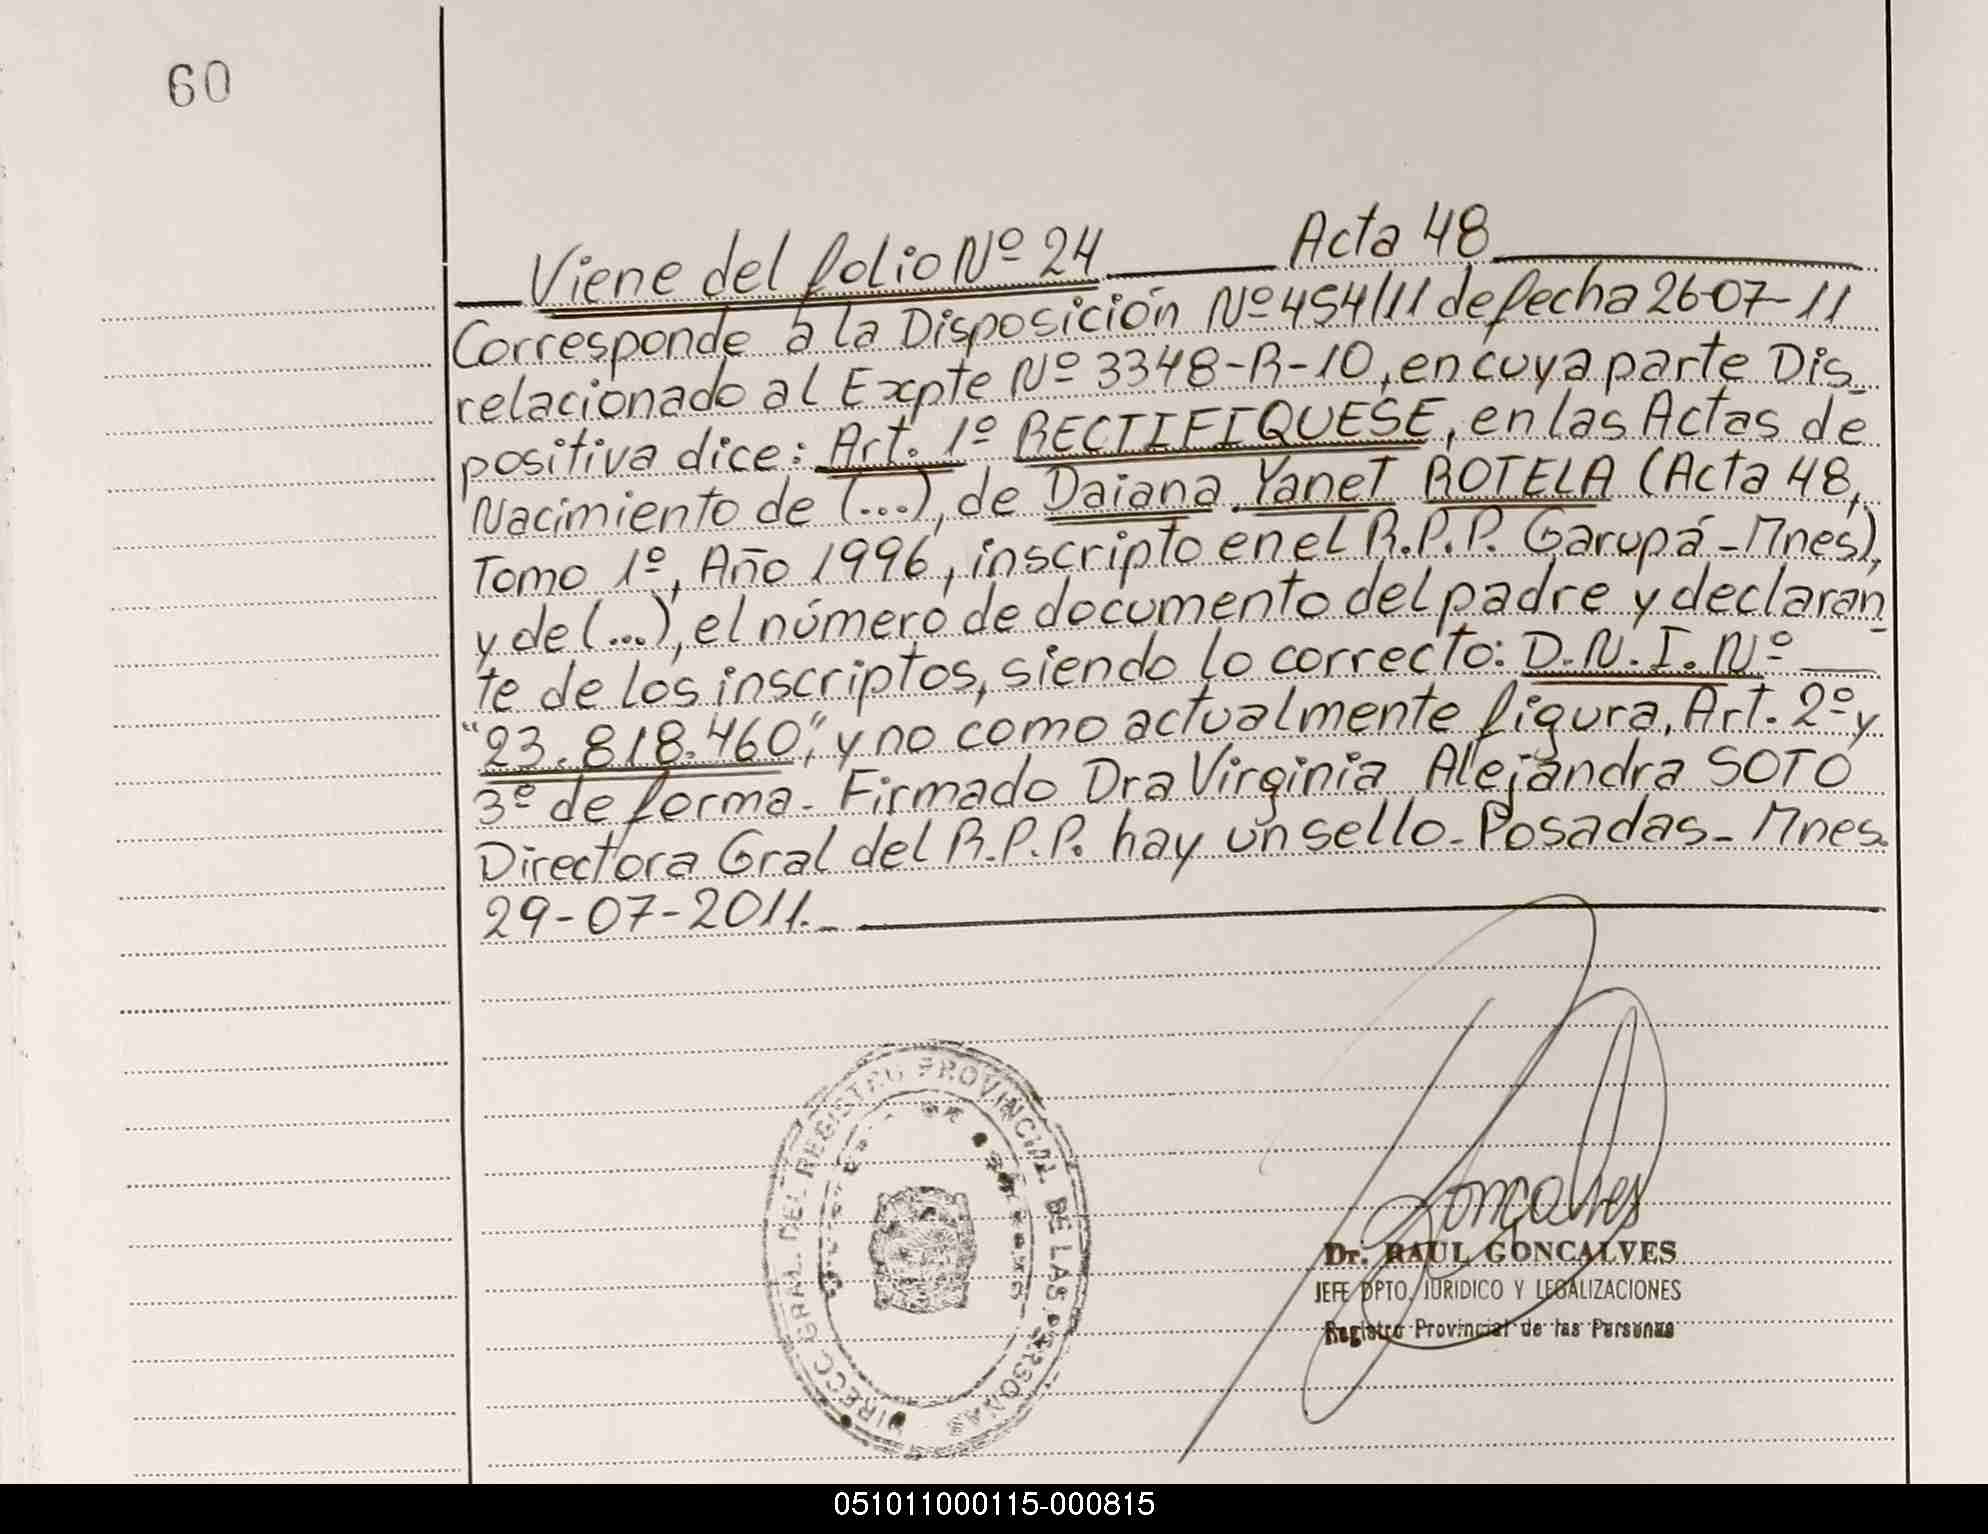 60
Viene del folio Nº 24 Acta 48
Corresponde a la Disposición Nº 454/11 de fecha 26-07-11
relacionado al Expte Nº 3348-R-10, en cuya parte Dis_
positiva dice: Art. 1º RECTIFIQUESE, en las Actas de
Nacimiento de (...), de Daiana Yanet ROTELA (Acta 48,
Tomo 1º, Año 1996, inscripto en el R.P.P. Garupá - Mnes),
y de (...), el número de documento del padre y declaran_
te de los inscriptos, siendo lo correcto: D.N.I. Nº
"23.818.460", y no como actualmente figura, Art. 2º y
3º de forma - Firmado Dra Virginia Alejandra SOTO
Directora Gral del R.P.P. hay un sello - Posadas - Mnes.
29-07-2011.-
DIRECC. GRAL. DEL REGISTRO PROVINCIAL DE LAS PERSONAS
Goncalves
Dr. RAUL GONCALVES
JEFE DPTO. JURIDICO Y LEGALIZACIONES
Registro Provincial de las Personas
051011000115-000815